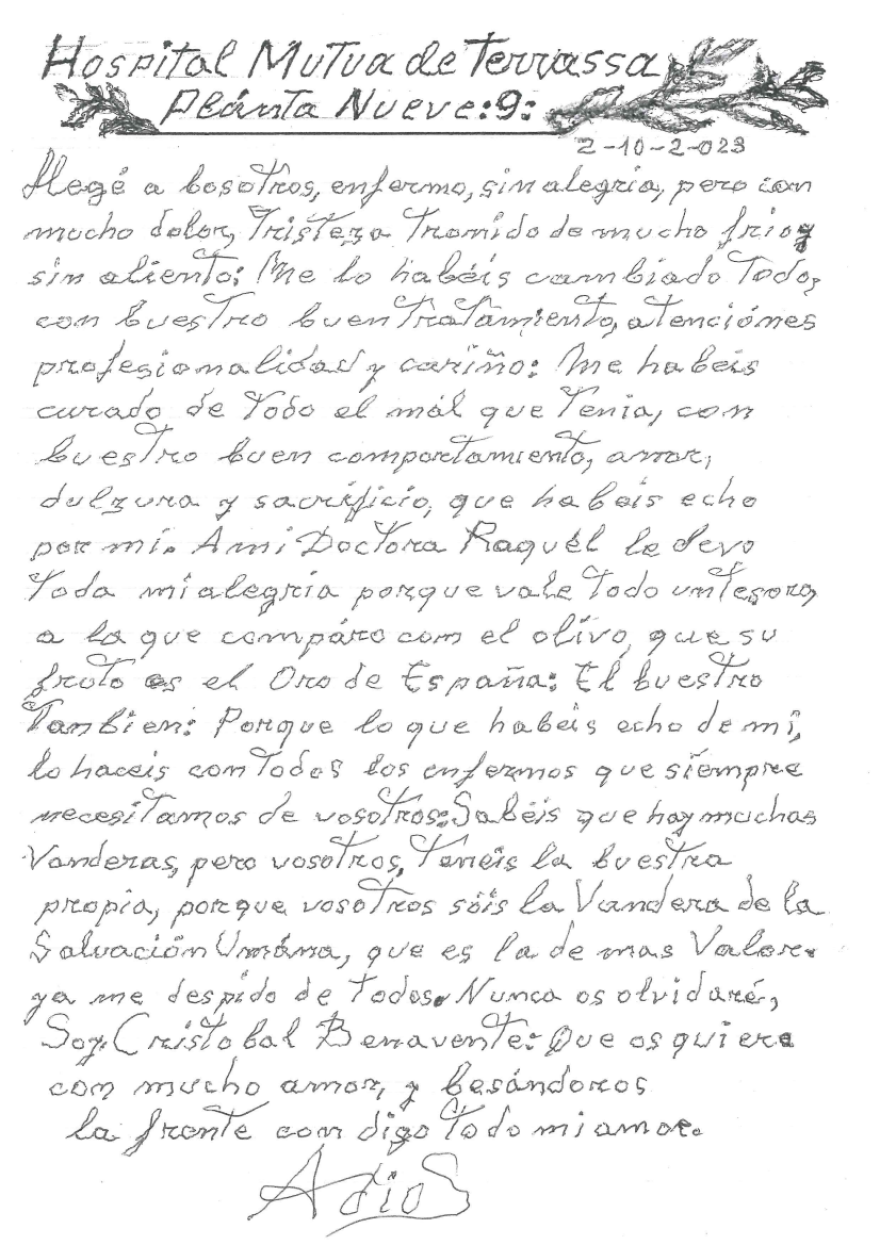 Hospital Mutua de Terrassa
Plánta Nueve:9:
2-10-2-023
Llegé a bosotros, enfermo, sin alegria, pero con
mucho dolor, Tristeza Tramido de mucho frio y
sin aliento; Me lo habéis cambiado Todo,
con buestro buen Tratamiento, atenciónes
profesionalidad y cariño: Me habéis
curado de Todo el mál que Tenia, con
buestro buen comportamiento, amor,
dulzura y sacrificio, que habéis echo
por mí. Ami Doctora Raquél le devo
Toda mi alegria porque vale Todo un Tesoro,
a la que compáro com el olivo, que su
fruto es el Oro de España: El buestro
Tanbien: Porque lo que habéis echo de mi,
lo haceis con Todos los enfermos que siempre
necesitamos de vosotros: Sabéis que hay muchas
Vanderas, pero vosotros, Tenéis la buestra
propia, porque vosotros sóis la Vandera de la
Salvación Umána, que es la de mas Valor.
ya me despido de Todos. Nunca os olvidaré,
Soy, Cristobal Benavente: Que os quiere
con mucho amor, y besándoos
la frente con digo Todo mi amor.
AdioS